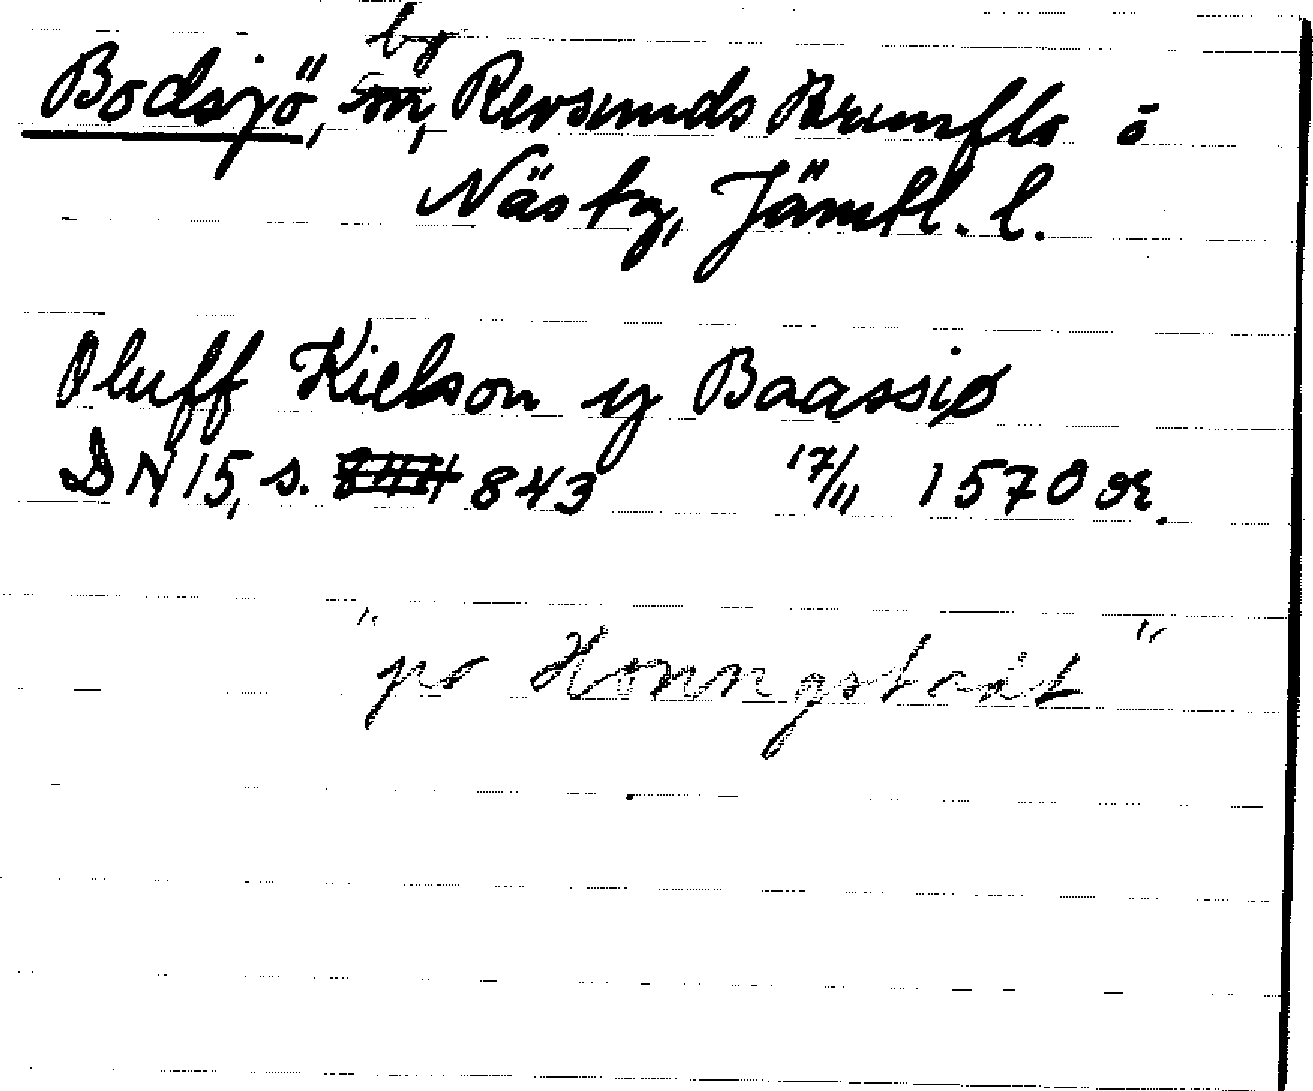 Bodsjö, by, Revsunds Brunflo o
Näs tg, Jämtl. l.
Oluff Kielson y Baassiø
DN 15, s. 843 17/11 1570 or.
" på Honngstadt "